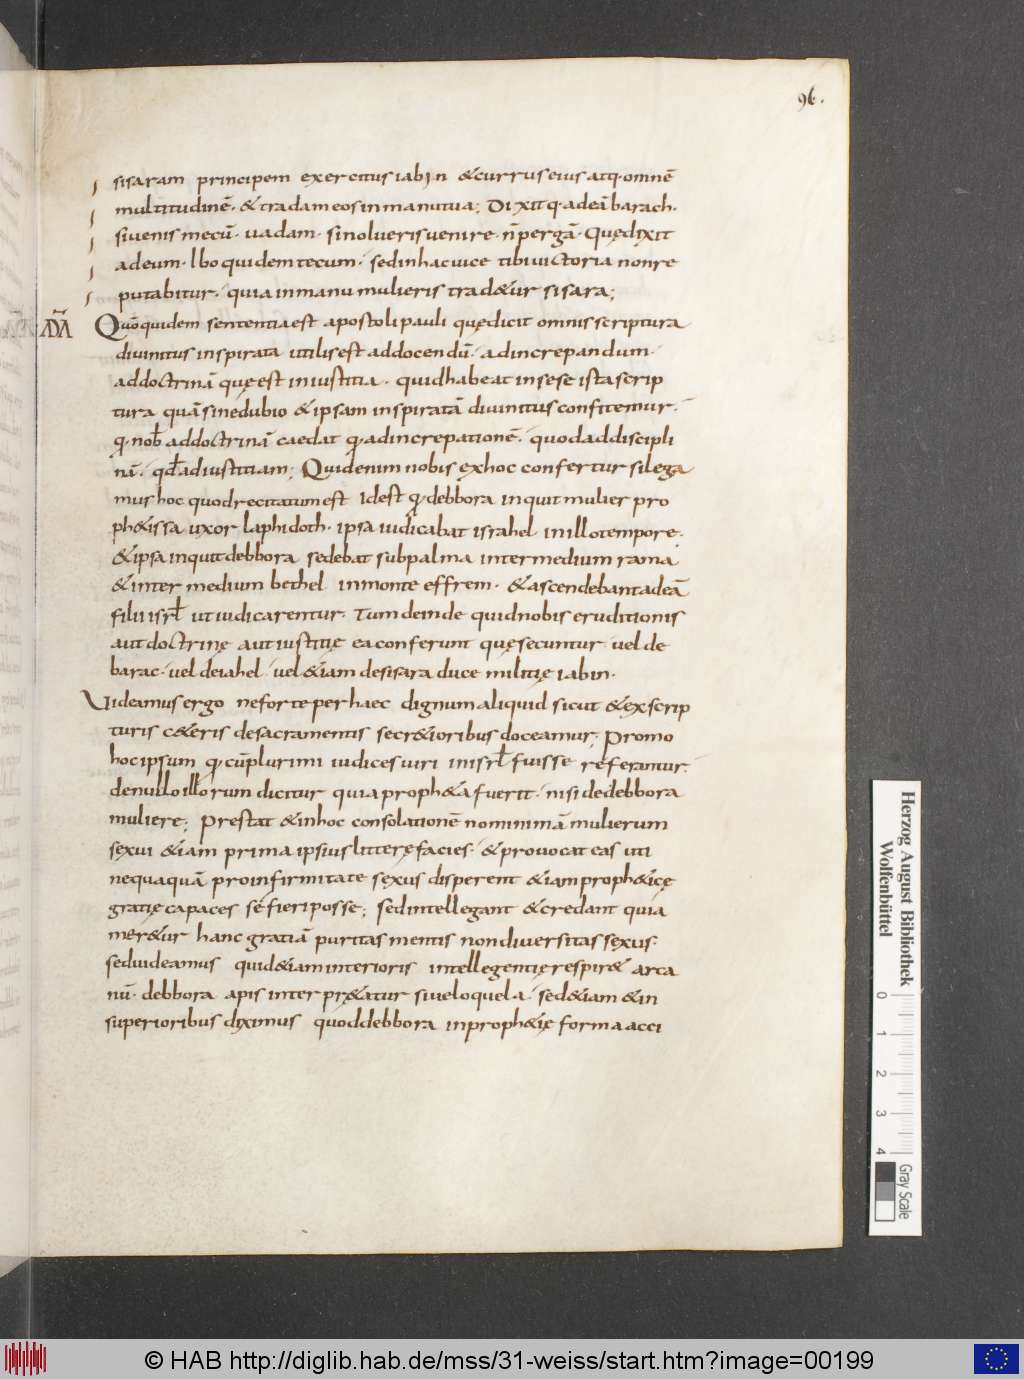 96.
sisaram principem exercitus iabin & currus eius atq· omnē
multitudinē· & tradam eos in manu tua; Dixitq· ad eā barach·
si uenis mecū· uadam· si nolueris uenire· n̄ pergā· Quę dixit
ad eum· Ibo quidem tecum· sed in hac uice tibi uictoria non re
putabitur· quia in manu mulieris trad&ur sisara;
ADĀ Quō quidem sententia est apostoli pauli quę dicit omnis scriptura
diuinitus inspirata utilis est ad docendū· ad increpandum·
ad doctrinā quę est in iustitia· quid habeat in sese ista scrip
tura quā sine dubio & ipsam inspiratā diuinitus confitemur·
q· nob̄ ad doctrinā caedat q· ad increpationē· quod ad discipli
nā· qd̄ ad iustitiam; Quid enim nobis ex hoc confertur si lega
mus hoc quod recitatum est Id est q· debbora inquit mulier pro
ph&issa uxor laphidoth· ipsa iudicabat israhel in illo tempore·
& ipsa inquit debbora sedebat sub palma inter medium rama
& inter medium bethel in monte effrem· & ascendebant ad eā
filii isrł ut iudicarentur· Tum deinde quid nobis eruditionis
aut doctrinę aut iustitię ea conferunt quę secuntur uel de
barac· uel de iahel· uel &iam de sisara duce militię iabin·
Uideamus ergo ne forte per haec dignum aliquid sicut & ex scrip
turis c&eris de sacramentis secr&ioribus doceamur; Promo
hoc ipsum q· cū plurimi iudices uiri in isrł fuisse referantur·
de nullo illorum dicitur quia proph&a fuerit· nisi de debbora
muliere; Prestat & in hoc consolationē non minimā mulierum
sexui &iam prima ipsius litterę facies· & prouocat eas uti
nequaquā pro infirmitate sexus disperent &iam proph&icę
gratię capaces se fieri posse; sed intellegant & credant quia
mer&ur hanc gratiā puritas mentis non diuersitas sexus·
sed uideamus quid &iam interioris intellegentię respir& arca
nū· debbora apis interpr&atur siue loquela· sed &iam & in
superioribus diximus quod debbora in proph&ię forma acci
Herzog August Bibliothek
Wolfenbüttel
0 1 2 3 4
Gray Scale
© HAB http://diglib.hab.de/mss/31-weiss/start.htm?image=00199